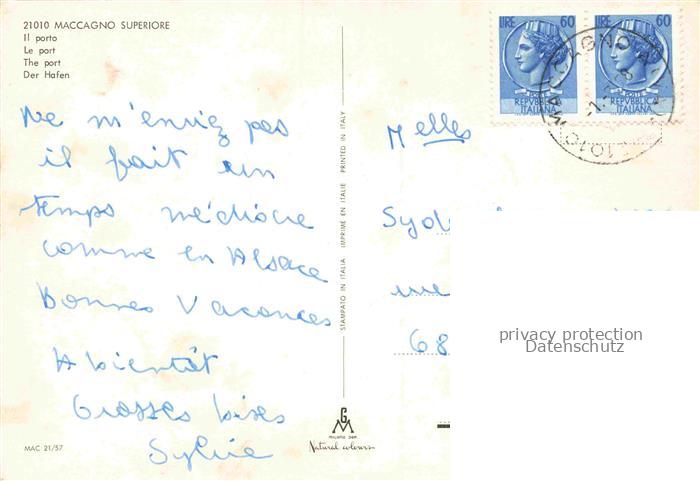 21010 MACCAGNO SUPERIORE
Il porto
Le port
The port
Der Hafen
Ne m'enviez pas
il fait un
temps médiocre
comme en Alsace
Bonnes Vacances
A bientôt
Grosses bises
Sylvie
MAC 21/57
STAMPATO IN ITALIA IMPRIMÉ EN ITALIE PRINTED IN ITALY
GM
Natural colours
LIRE 60
POSTE
REPVBBLICA
ITALIANA
LIRE 60
POSTE
REPVBBLICA
ITALIANA
Melles
68
privacy protection
Datenschutz